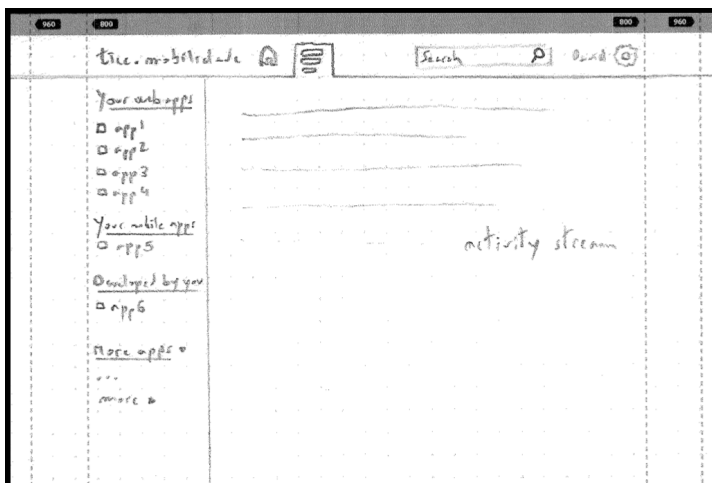 960 800 800 960
tice.mobilidade Search David
Your web apps
app1
app2
app3
app4
Your mobile apps
app5
Developed by you
app6
More apps
...
more
activity stream